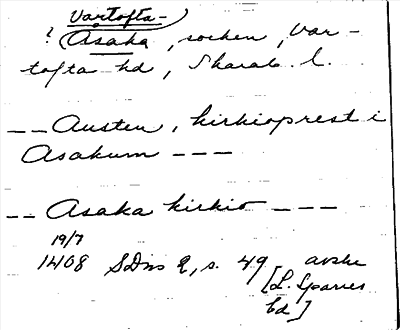 Vartofta-
? Åsaka, socken, Var-
tofta hd, Skarab. l.
-- Austen, kirkioprest i
Asakum ---
-- Asaka kirkio ---
19/7
1408 SDns 2, s. 49 avskr
[L. Sparres
bd]